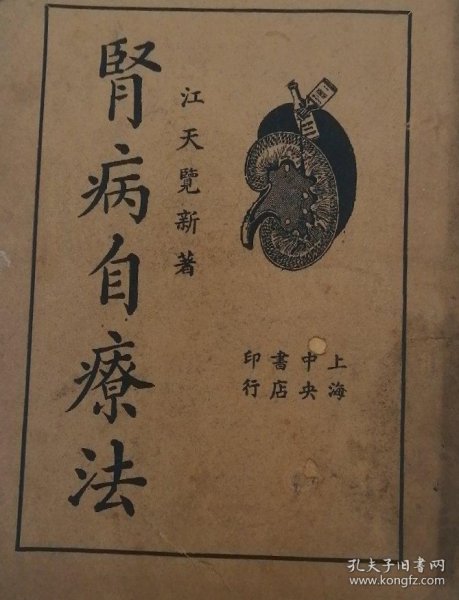 腎病自療法
江天覽新著
上海
中央
書店
印行
孔夫子旧书网
www.kongfz.com